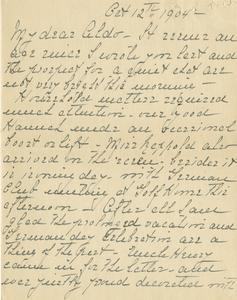 Oct 12th 1904
My dear Aldo - It seems an
age since I wrote you last and
the prospect for a quiet chat are
not very bright this morning -
Household matters required
much attention - our good
Hannah needs an occasional
boost or lift - Miss Leopold also
arrived on the scene - besides it
is ironing day - with German
Club meeting at Golf Home this
afternoon - After all I am
glad the promised vacation and
German day Celebration are a
thing of the past - Uncle Henry
came in for the latter and
every thing proud decorated with